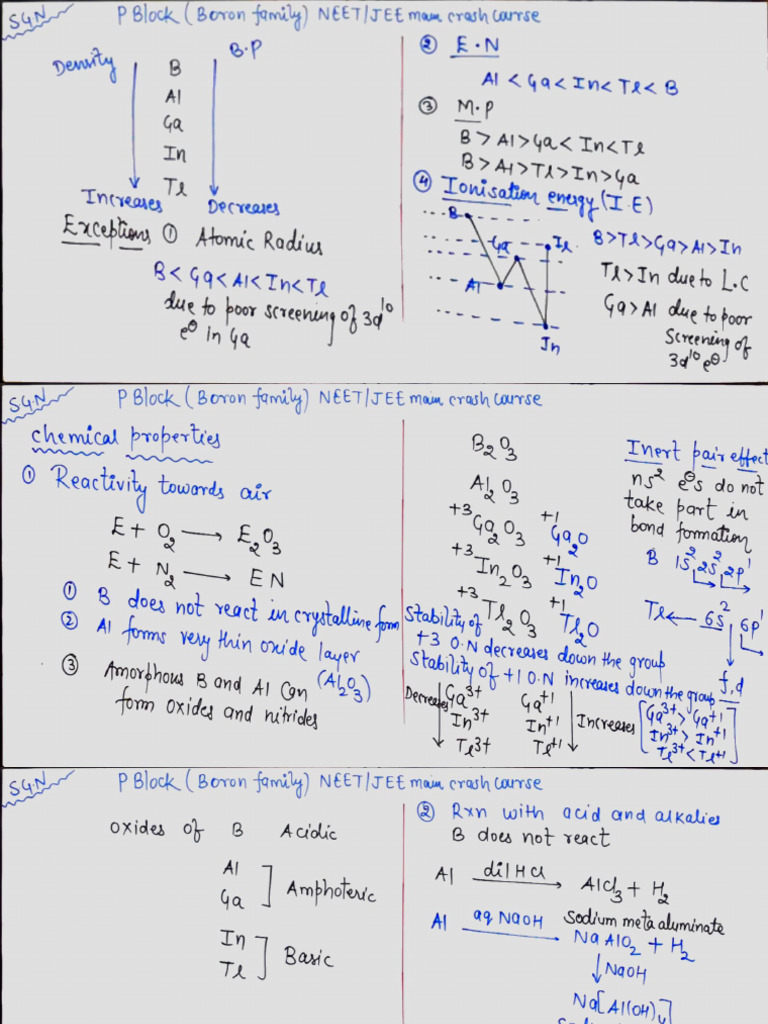 SGN
P Block (Boron family) NEET/JEE main crash course
Density
B.P
B
Al
Ga
In
Tl
Increases
Decreases
Exceptions ① Atomic Radius
B < Ga < Al < In < Tl
due to poor screening of 3d¹⁰
e⊖ in Ga
② E.N
Al < Ga < In < Tl < B
③ M.P
B > Al > Ga < In < Tl
B > Al > Tl > In > Ga
④ Ionisation energy (I.E)
B
Ga
Tl
Al
In
B > Tl > Ga > Al > In
Tl > In due to L.C
Ga > Al due to poor
screening of
3d¹⁰ e⊖
SGN
P Block (Boron family) NEET/JEE main crash course
chemical properties
① Reactivity towards air
E + O₂ → E₂O₃
E + N₂ → EN
① B does not react in crystalline form
② Al forms very thin oxide layer
(Al₂O₃)
③ Amorphous B and Al can
form oxides and nitrides
B₂O₃
Al₂O₃
+3 Ga₂O₃ +1 Ga₂O
+3 In₂O₃ +1 In₂O
+3 Tl₂O₃ +1 Tl₂O
Inert pair effect
ns² e⊖s do not
take part in
bond formation
B 1s² 2s² 2p¹
Tl ← 6s² 6p¹
f,d
Stability of
+3 O.N decreases down the group
Stability of +1 O.N increases down the group
Decreases
Ga³⁺ Ga⁺¹
In³⁺ In⁺¹
Tl³⁺ Tl⁺¹
Increases
[Ga³⁺ > Ga⁺¹
In³⁺ > In⁺¹
Tl³⁺ < Tl⁺¹]
SGN
P Block (Boron family) NEET/JEE main crash course
Oxides of B Acidic
Al
Ga ] Amphoteric
In
Tl ] Basic
② Rxn with acid and alkalies
B does not react
Al dil HCl → AlCl₃ + H₂
Sodium meta aluminate
Al aq NaOH → NaAlO₂ + H₂
↓ NaOH
Na[Al(OH)₄]